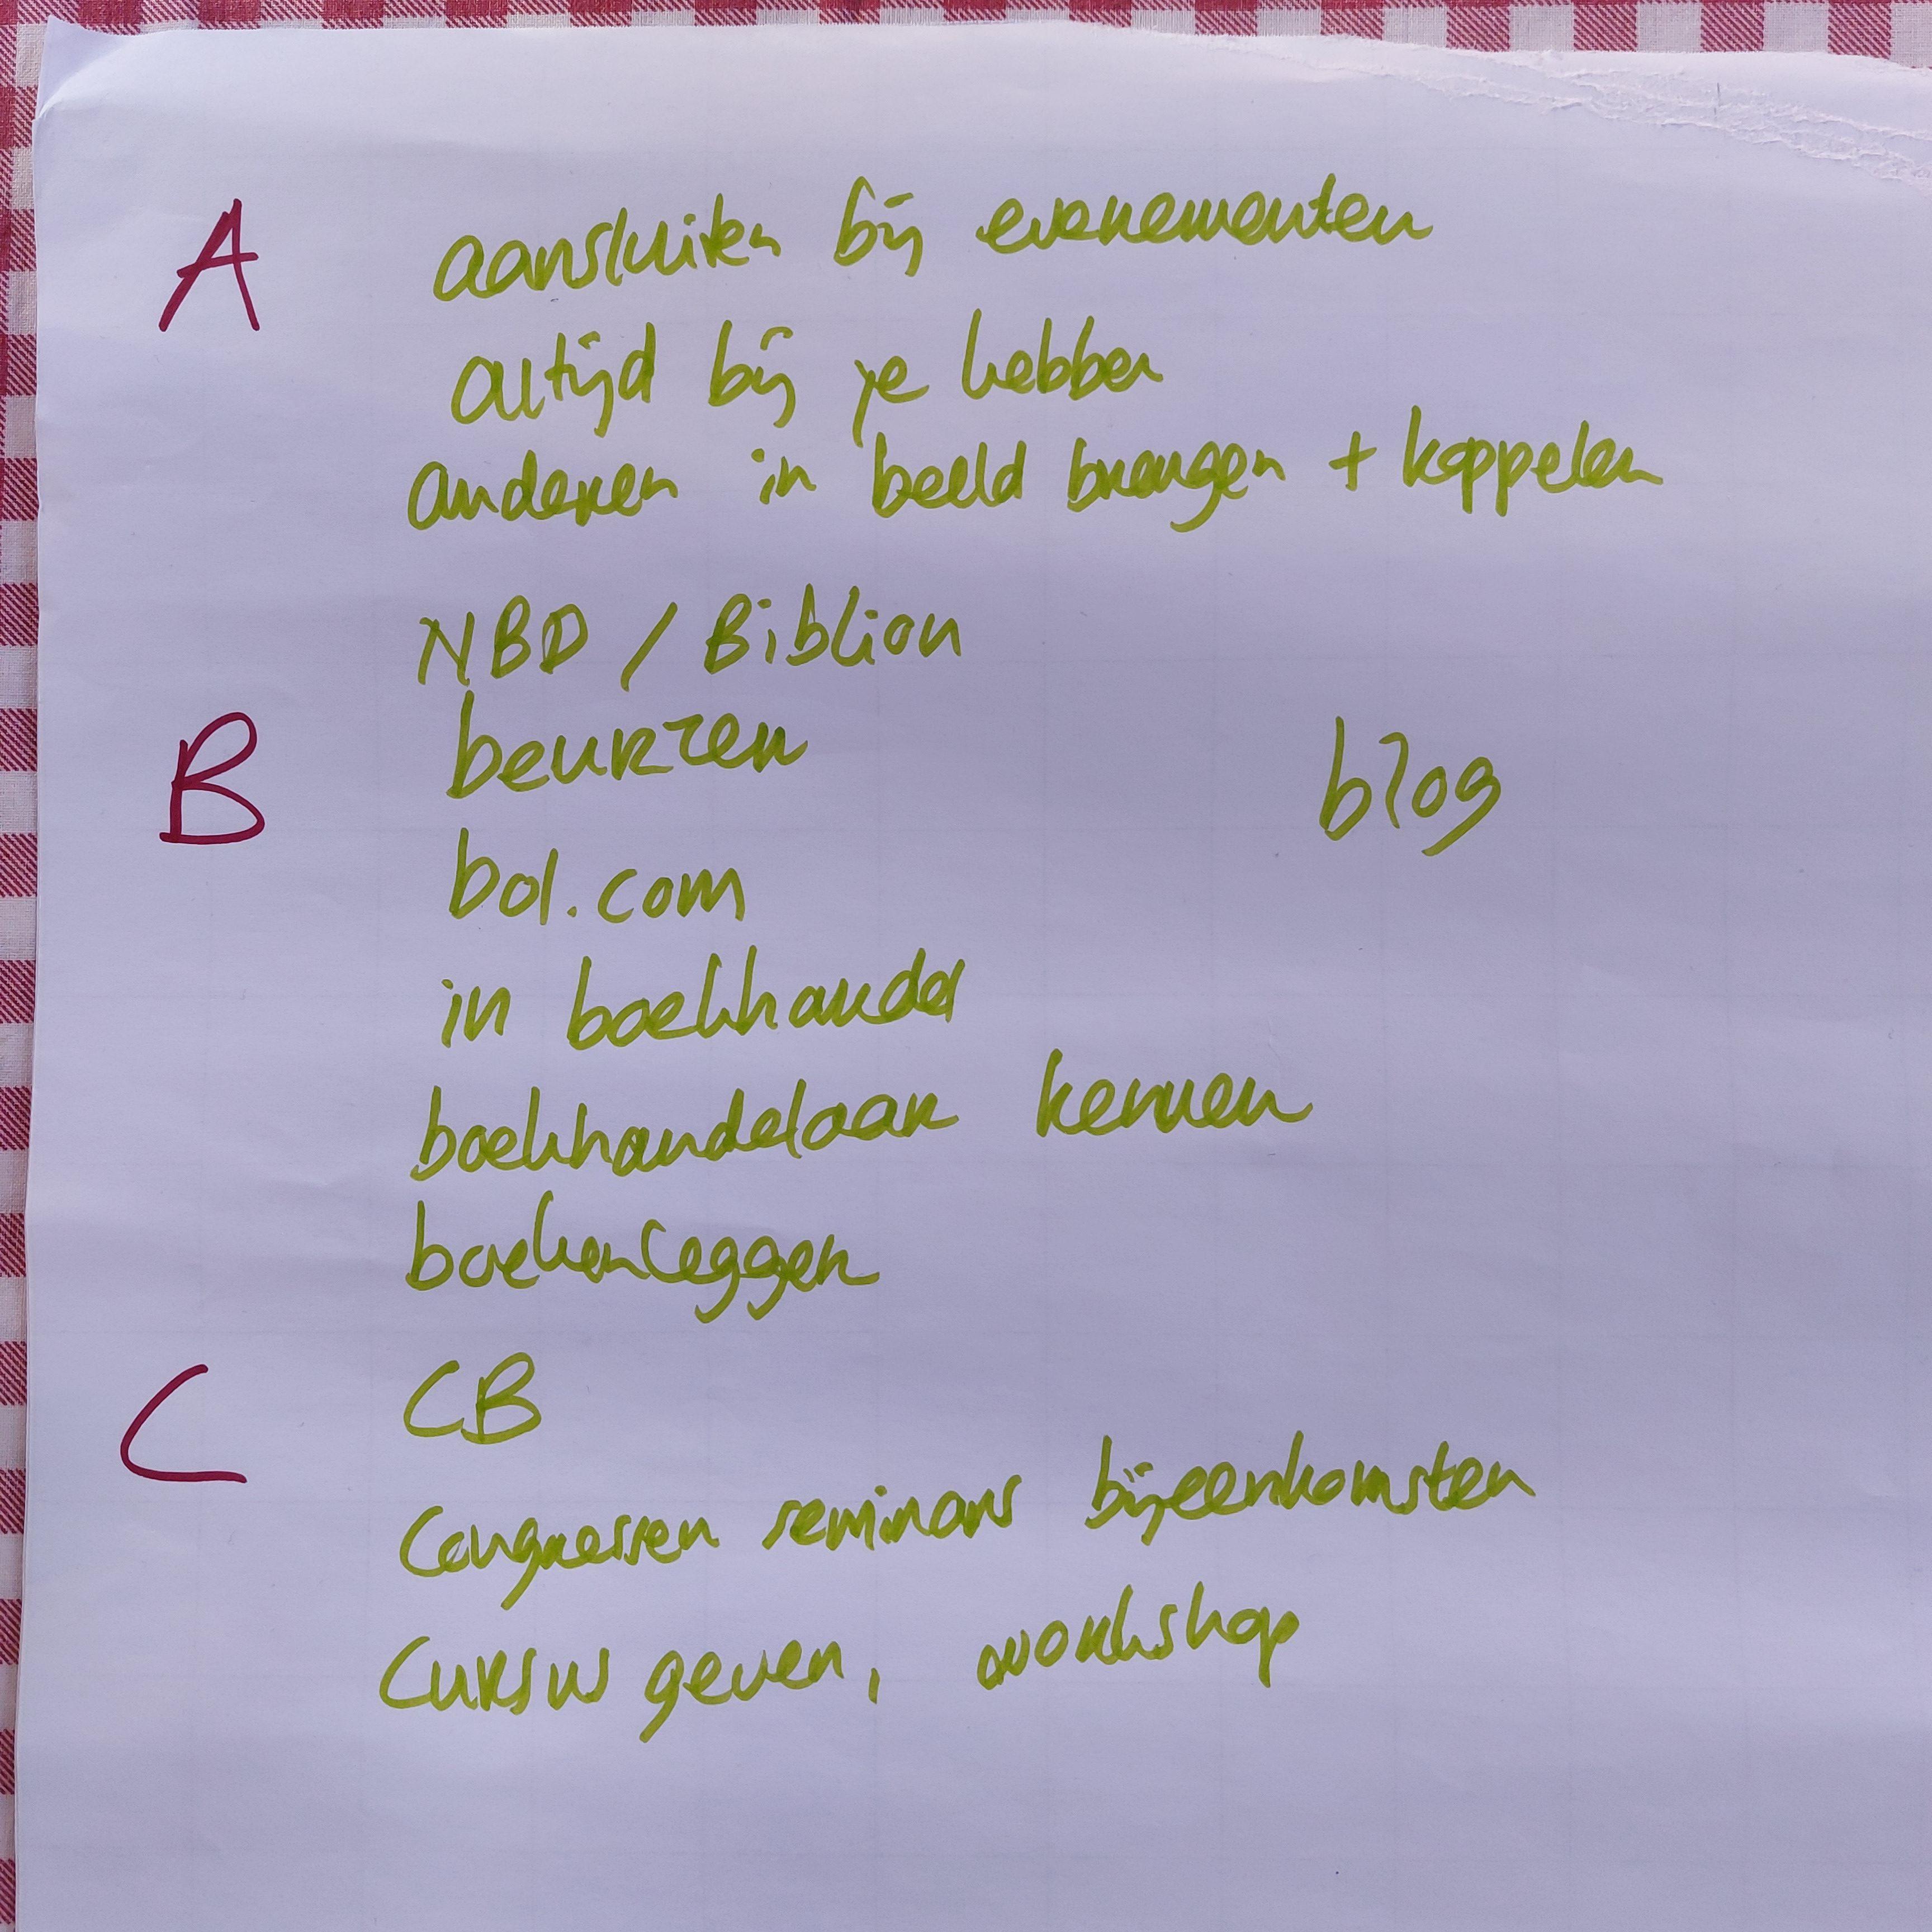 A aansluiten bij evenementen
altijd bij je hebben
anderen in beeld brengen + koppelen
NBD / Biblion
B beurzen blog
bol.com
in boekhandel
boekhandelaar kennen
boekenleggen
C CB
Congressen seminars bijeenkomsten
Cursus geven, workshop